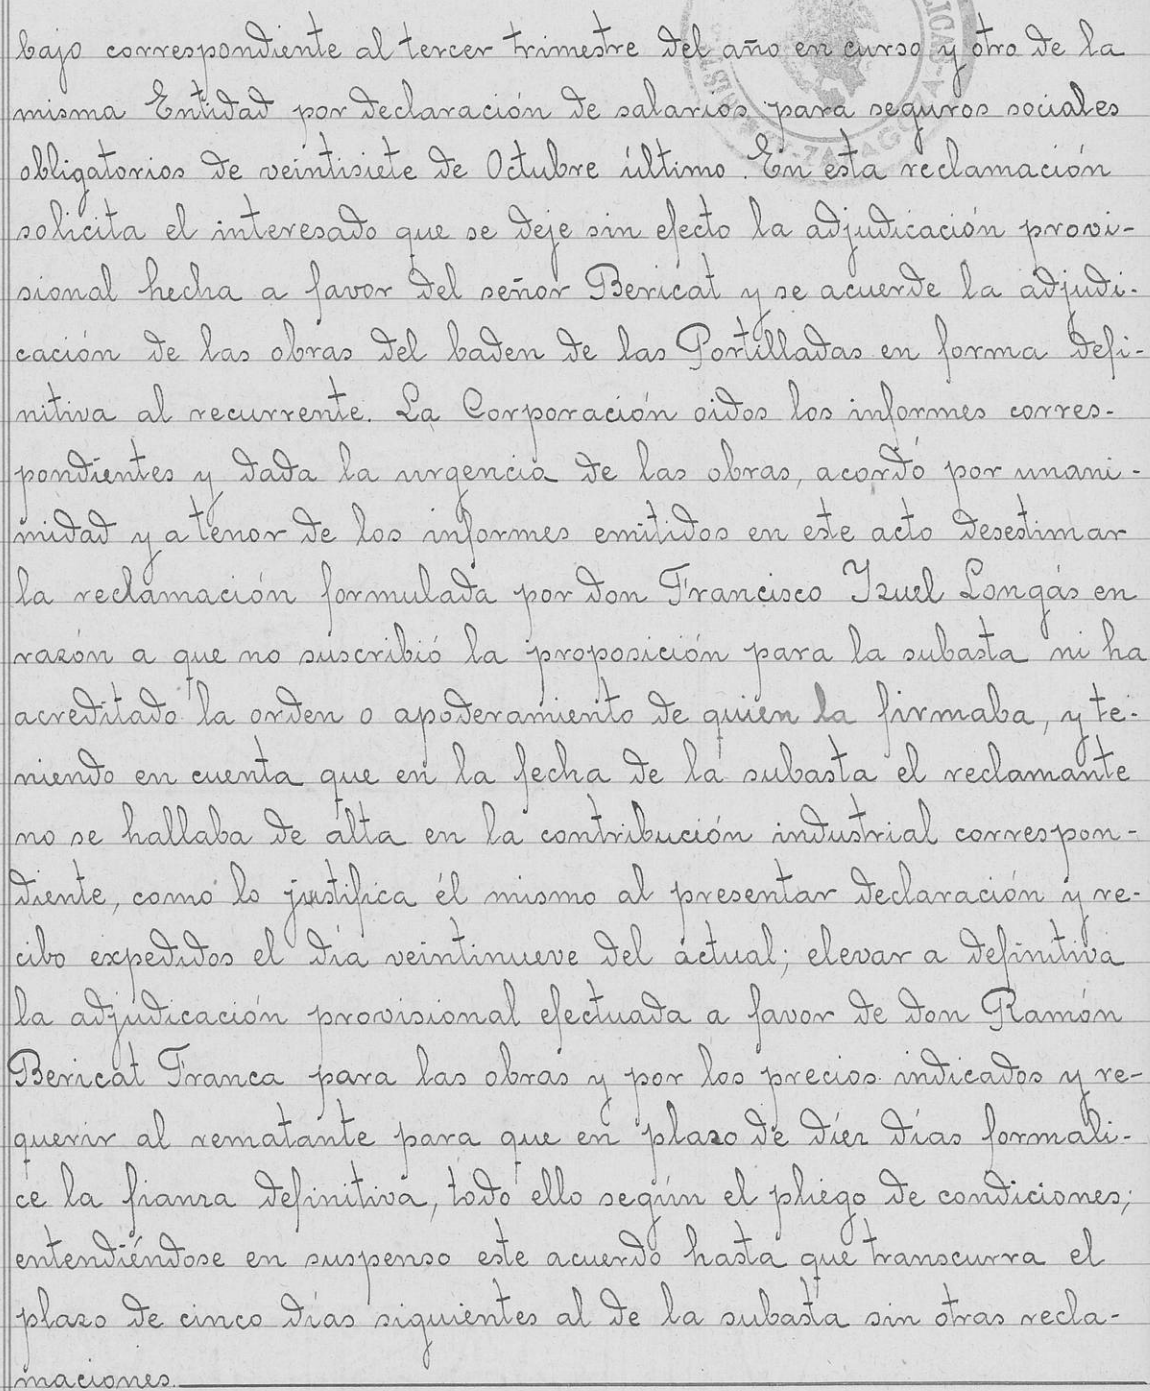 bajo correspondiente al tercer trimestre del año en curso y otro de la
misma Entidad por declaración de salarios para seguros sociales
obligatorios de veintisiete de Octubre último. En esta reclamación
solicita el interesado que se deje sin efecto la adjudicación provi-
sional hecha a favor del señor Bericat y se acuerde la adjudi-
cación de las obras del baden de las Portilladas en forma defi-
nitiva al recurrente. La Corporación oidos los informes corres-
pondientes y dada la urgencia de las obras, acordó por unani-
midad y a tenor de los informes emitidos en este acto desestimar
la reclamación formulada por don Francisco Izuel Longás en
razón a que no suscribió la proposición para la subasta ni ha
acreditado la orden o apoderamiento de quien la firmaba, y te-
niendo en cuenta que en la fecha de la subasta el reclamante
no se hallaba de alta en la contribución industrial correspon-
diente, como lo justifica él mismo al presentar declaración y re-
cibo expedidos el día veintinueve del actual; elevar a definitiva
la adjudicación provisional efectuada a favor de don Ramón
Bericat Franca para las obras y por los precios indicados y re-
querir al rematante para que en plazo de díez días formali-
ce la fianza definitiva, todo ello según el pliego de condiciones;
entendiéndose en suspenso este acuerdo hasta que transcurra el
plazo de cinco días siguientes al de la subasta sin otras recla-
maciones.